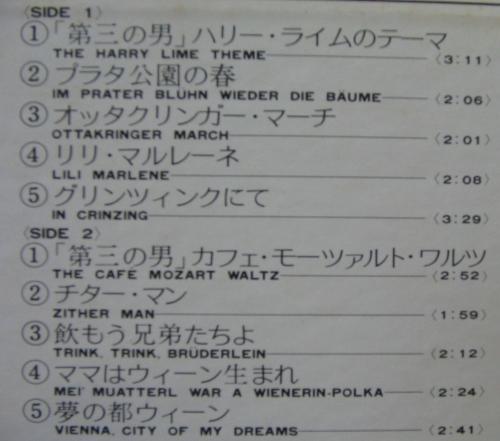 〈SIDE 1〉
①「第三の男」ハリー・ライムのテーマ
THE HARRY LIME THEME 〈3:11〉
②プラタ公園の春
IM PRATER BLÜHN WIEDER DIE BÄUME 〈2:06〉
③オッタクリンガー・マーチ
OTTAKRINGER MARCH 〈2:01〉
④リリ・マルレーネ
LILI MARLENE 〈2:08〉
⑤グリンツィンクにて
IN CRINZING 〈3:29〉
〈SIDE 2〉
①「第三の男」カフェ・モーツァルト・ワルツ
THE CAFÉ MOZART WALTZ 〈2:52〉
②チター・マン
ZITHER MAN 〈1:59〉
③飲もう兄弟たちよ
TRINK, TRINK, BRÜDERLEIN 〈2:12〉
④ママはウィーン生まれ
MEI' MUATTERL WAR A WIENERIN-POLKA 〈2:24〉
⑤夢の都ウィーン
VIENNA, CITY OF MY DREAMS 〈2:41〉